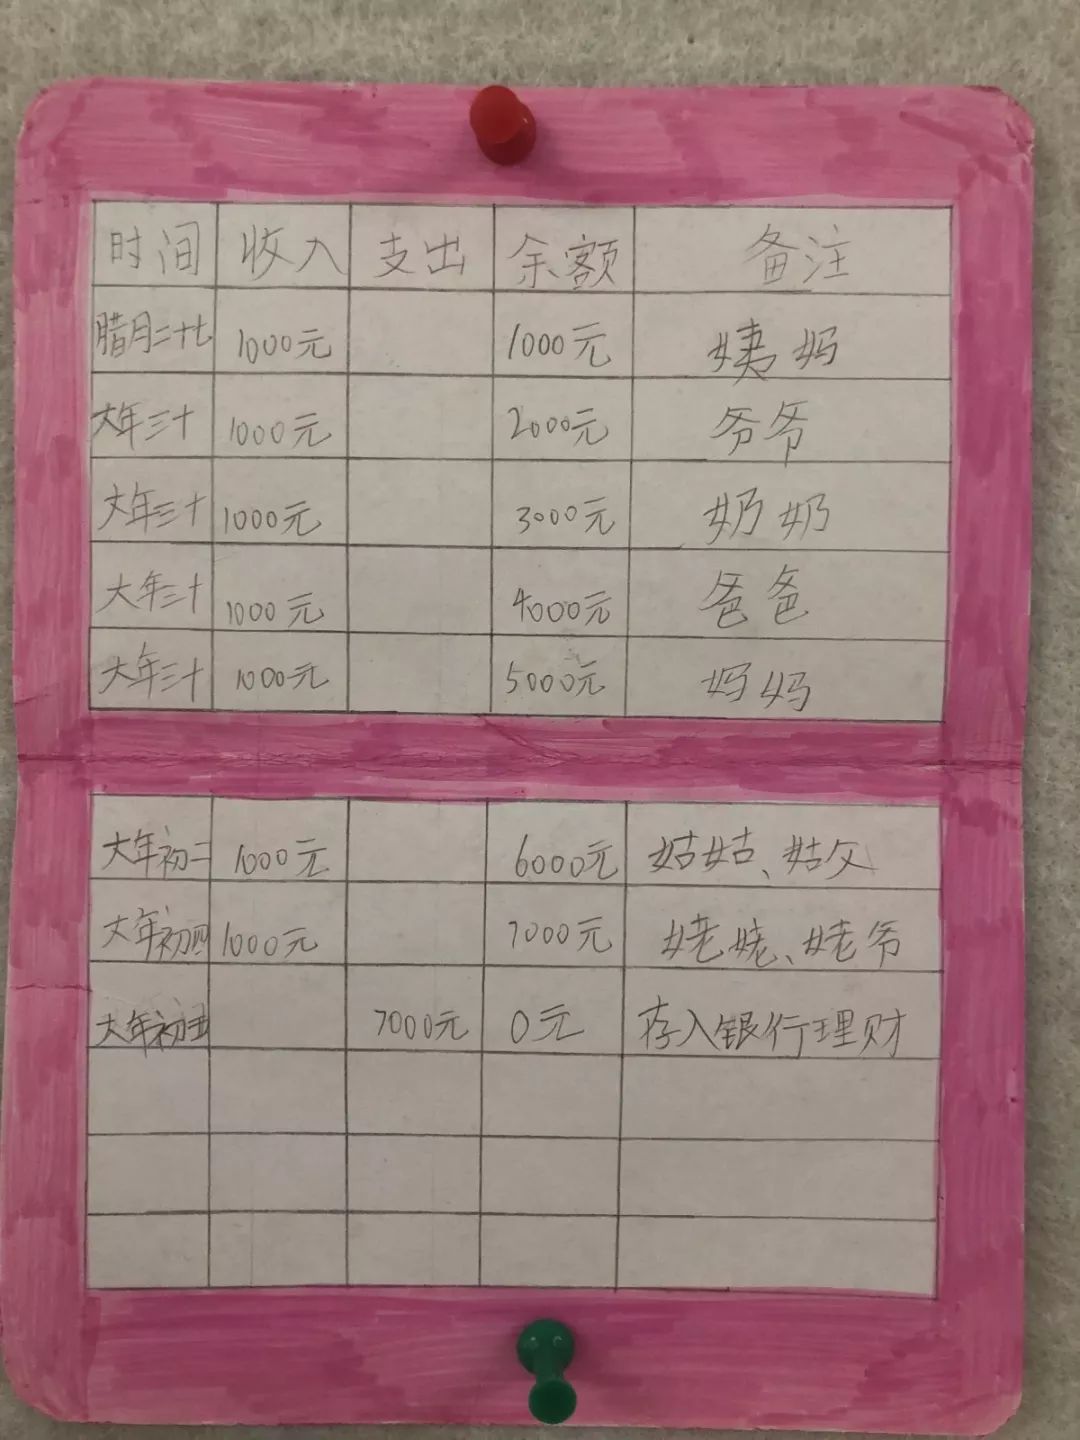 时间 收入 支出 余额 备注
腊月二十七 1000元 1000元 姨妈
大年三十 1000元 2000元 爷爷
大年三十 1000元 3000元 奶奶
大年三十 1000元 4000元 爸爸
大年三十 1000元 5000元 妈妈
大年初二 1000元 6000元 姑姑、姑父
大年初四 1000元 7000元 姥姥、姥爷
大年初五 7000元 0元 存入银行理财